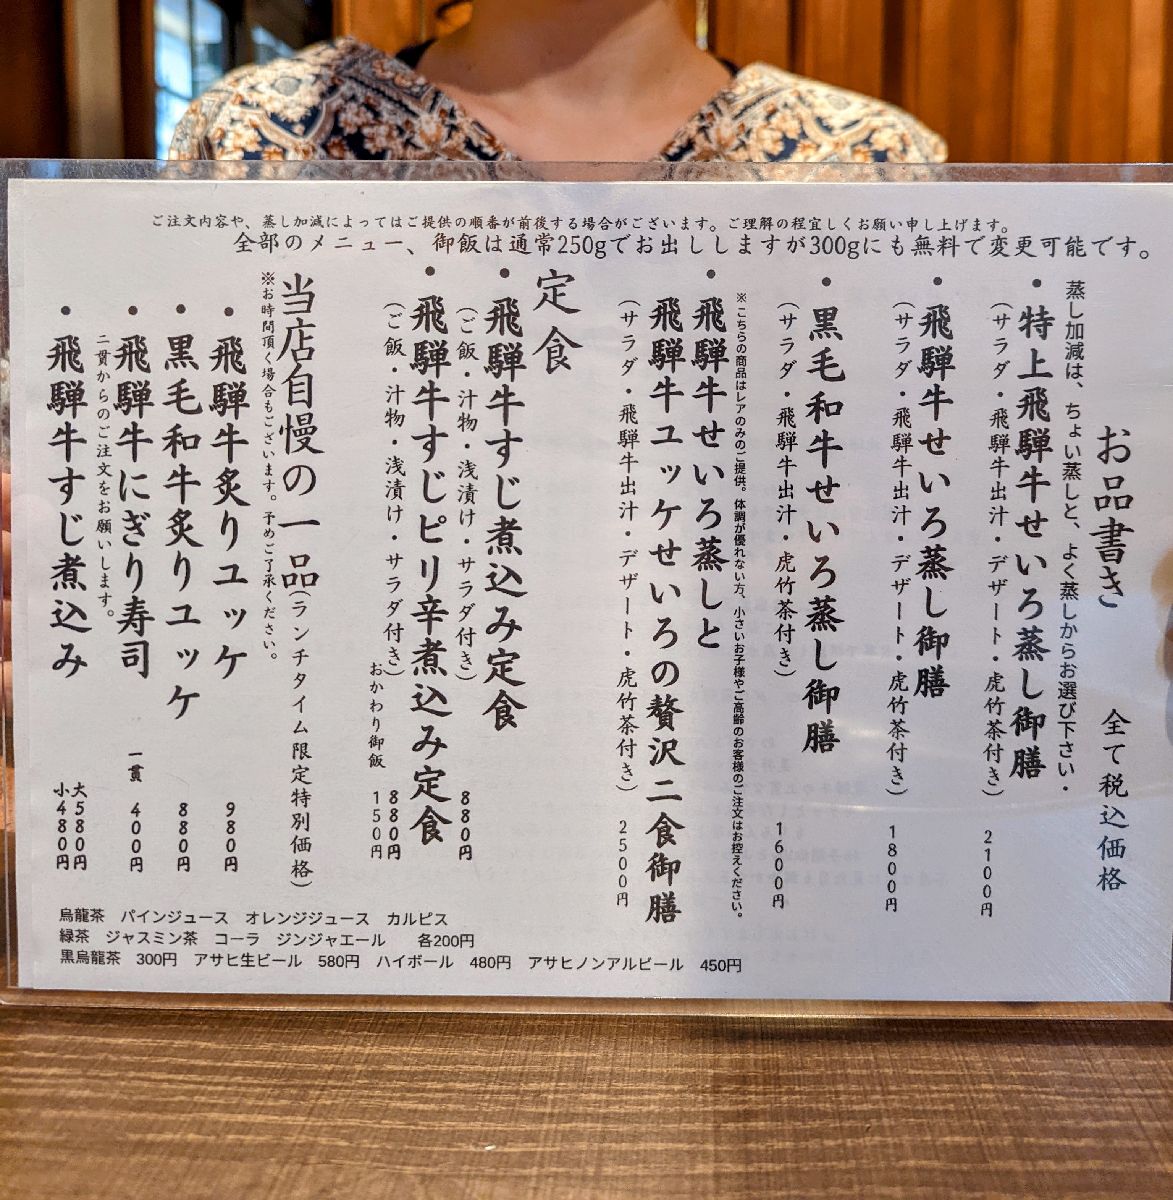 ご注文内容や、蒸し加減によってはご提供の順番が前後する場合がございます。ご理解の程宜しくお願い申し上げます。
全部のメニュー、御飯は通常250gでお出ししますが300gにも無料で変更可能です。
お品書き 全て税込価格
蒸し加減は、ちょい蒸しと、よく蒸しからお選び下さい・
・特上飛騨牛せいろ蒸し御膳
(サラダ・飛騨牛出汁・デザート・虎竹茶付き) 2100円
・飛騨牛せいろ蒸し御膳
(サラダ・飛騨牛出汁・デザート・虎竹茶付き) 1800円
・黒毛和牛せいろ蒸し御膳
(サラダ・飛騨牛出汁・虎竹茶付き) 1600円
※こちらの商品はレアのみのご提供。体調が優れない方、小さいお子様やご高齢のお客様のご注文はお控えください。
・飛騨牛せいろ蒸しと
飛騨牛ユッケせいろの贅沢二食御膳
(サラダ・飛騨牛出汁・デザート・虎竹茶付き) 2500円
定食
・飛騨牛すじ煮込み定食
(ご飯・汁物・浅漬け・サラダ付き) 880円
・飛騨牛すじピリ辛煮込み定食
(ご飯・汁物・浅漬け・サラダ付き) 880円
おかわり御飯 150円
当店自慢の一品(ランチタイム限定特別価格)
※お時間頂く場合もございます。予めご了承ください。
・飛騨牛炙りユッケ 980円
・黒毛和牛炙りユッケ 880円
・飛騨牛にぎり寿司 一貫 400円
二貫からのご注文をお願いします。
・飛騨牛すじ煮込み 大580円
小480円
烏龍茶 パインジュース オレンジジュース カルピス
緑茶 ジャスミン茶 コーラ ジンジャエール 各200円
黒烏龍茶 300円 アサヒ生ビール 580円 ハイボール 480円 アサヒノンアルビール 450円